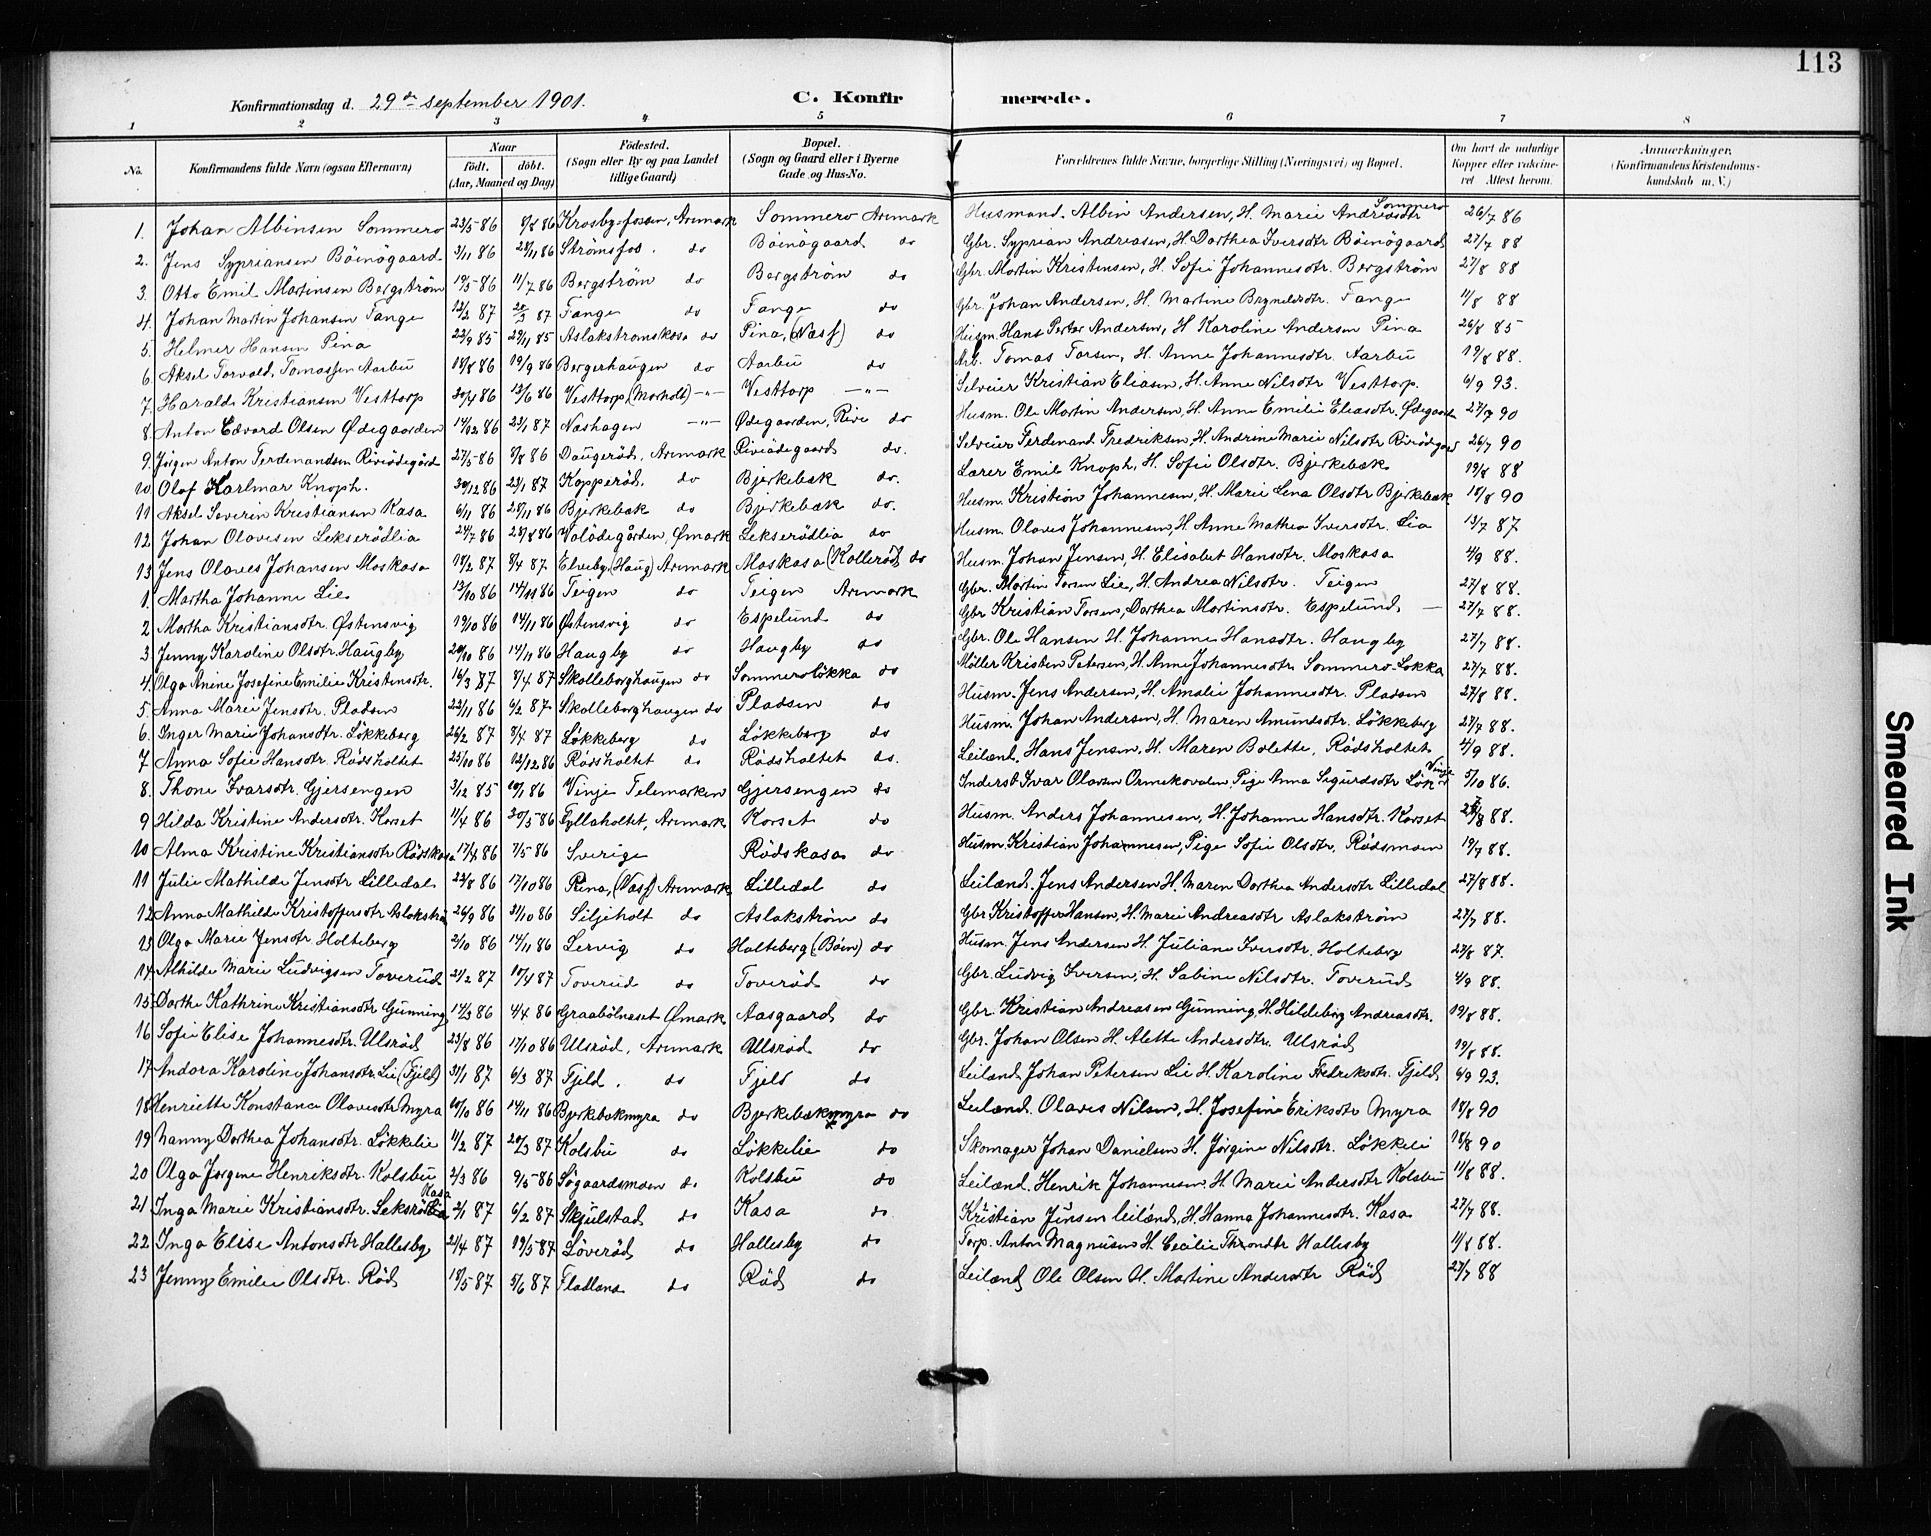 113
Konfirmationsdag d. 29de september 1901.
C. Konfirmerede.
1 2 3 4 5 6 7 8
No. Konfirmandens fulde Navn (ogsaa Efternavn) Naar født. døbt. (Aar, Maaned og Dag) Fødested. (Sogn eller By og paa Landet tillige Gaard) Bopæl. (Sogn og Gaard eller i Byerne Gade og Hus-No. Forældrenes fulde Navne, borgerlige Stilling (Næringsvei) og Bopæl. Om havt de naturlige Kopper eller vakcineret. Attest herom. Anmærkninger. (Konfirmandens Kristendomskundskab m. V.)
1. Johan Albinsen Sommero 23/5 86 8/8 86 Krosby-fossen, Aremark Sommero Aremark Husmand. Albin Andersen, H. Marie Andreasdtr Sommero 26/7 86
2. Jens Sypriansen Böinögaard 3/11 86 28/11 86 Strømsfos. do Böinögaard do Gbr. Syprian Andreasen, H. Dorthea Iversdtr Böinögaard 27/7 88
3. Otto Emil Martinsen Bergström 19/5 86 11/7 86 Bergström do Bergström do Gbr. Martin Kristensen, H. Sofie Johannesdtr. Bergström 27/8 88
4. Johan Martin Johansen Tange 12/2 87 87 Tange do Tange do Gbr. Johan Andersen, H. Martine Brynildsdtr. Tange 11/8 88
5. Helmer Hansen Pina 22/9 85 29/11 85 Aslakstromskasa do Pina, (Næss) do Husm. Hans Petter Andersen, H Karoline Andersen Pina 26/8 85
6. Aksel Torvald. Tomassen Aarbu 18/8 86 19/9 86 Bergerhaugen do Aarbu do Arb. Tomas Torsen, H. Anne Johannesdtr. Aarbu 19/8 88.
7. Harald Kristiansen Vesttorp 20/4 86 13/6 86 Vesttorp, (Morholt) -"- Vesttorp -"- Selveier Kristian Eliasen, H. Anne Nilsdtr Vesttorp. 6/9 93.
8. Anton Edvard Olsen Ödegaarden 14/12 86 23/1 87 Næshagen -"- Ödegaarden, Rive do Husm. Ole Martin Andersen, H. Anne Emilie Eliasdtr. Ödegaarden 27/7 90
9. Jørgen Anton Ferdinandsen Riviödegård 27/5 86 8/8 86 Daugeröd, Aremark Riviödegaard do. Selveier Ferdinand Fredriksen, H. Andrine Marie Nilsdtr Riviödegård 26/7 90
10. Olaf Harlmar Knoph. 30/12 86 23/1 87 Kopperöd. do Bjerkebæk do. Lærer Emil Knoph, H. Sofie Olsdtr. Bjerkebæk 19/8 88
11 Aksel Severin Kristiansen Kasa 6/11 86 28/11 86 Bjerkebæk do Bjerkebæk do. Husm. Kristian Johannesen, H. Marie Lena Olsdtr Bjerkebæk 18/8 90
12 Johan Olavesen Lekserödlia 24/7 86 29/8 86 Volödegården, Ømark Lekserödlia do Husm. Olaves Johannesen, H. Anne Mathea Iversdtr. Lia 13/7 87
13 Jens Olaves Johansen Moskasa 18/2 87 8/4 87 Elveby, (Haug) Aremark Moskasa (Kolleröd) do Husm. Johan Jensen, H. Elisabet Hansdtr. Moskasa 4/9 88.
1. Martha Johanne Lie 13/10 86 14/11 86 Teigen do Teigen Aremark Gbr. Martin Torsen Lie, H. Andrea Nilsdtr. Teigen 27/8 88.
2 Martha Kristiansdtr. Östensvig 19/10 86 14/11 86 Östensvig do Espelund do Gbr Kristian Torsen, Dorthea Martinsdtr. Espelund 27/7 88.
3 Jenny Karoline Olsdtr. Haugby 20/10 86 14/11 86 Haugby do Haugby do Gbr. Ole Hansen H. Johanne Hansdtr. Haugby 27/7 88.
4. Olga Anine Josefine Emilie Kristensdtr. 16/3 87 8/4 87 Skolleborghaugen do Sommerolökka do Möller Kristen Petersen, H. Anne Johannesdtr Sommero-Lökka 27/7 88.
5 Anna Marie Jensdtr. Pladsen 22/11 86 6/2 87 Skolleborghaugen do Pladsen do Husm. Jens Andersen, H. Amalie Johannesdtr. Pladsen 27/8 88.
6. Inger Marie Johansdtr. Lökkeberg 26/2 87 8/4 87 Lökkeberg do Lökkeberg do Husm. Johan Andersen, H. Maren Amundsdtr. Lökkeberg 27/7 88.
7 Anna Sofie Hansdtr. Rödsholtet 25/10 86 12/12 86 Rödsholtet do Rödsholtet do. Leilænd. Hans Jensen, H. Maren Bolette, Rödsholtet 4/9 88.
8. Thone Ivarsdtr. Gjersengen 3/12 85 10/1 86 Vinje Telemarken Gjersengen do Inderst. Ivar Olavsen Ormekovalen, Pige Anna Sigurdsdtr Vinje 5/10 86.
9 Hilda Kristine Andersdtr. Korset 11/4 86 30/5 86 Fyllaholtet, Aremark Korset do Husm. Anders Johannesen, H. Johanne Hansdtr. Korset 88.
10 Alma Kristine Kristiansdtr Rödskasa 17/4 86 7/5 86 Sverige Rödskasa do Husm. Kristian Johannesen, Pige Sofie Olsdtr, Rödsmoen 19/7 88.
11 Julie Mathilde Jensdtr Lilledal 22/8 86 17/10 86 Pina, (Næss) Aremark Lilledal do Leilænd. Jens Andersen H. Maren Dorthea Andersdtr Lilledal 27/8 88.
12 Anna Mathilde Kristoffersdtr Aslakström 26/9 86 31/10 86 Siljeholt do Aslakström do Gbr Kristoffer Hansen, H. Marie Andreasdtr Aslakström 27/7 88.
13 Olga Marie Jensdtr Holteberg 2/10 86 14/11 86 Lervig do Holteberg (Böen) do Husm. Jens Andersen H. Juliane Iversdtr. Holteberg 27/8 87.
14 Alhilde Marie Ludvigsen Toverud 21/2 87 10/4 87 Toverud do Toveröd do Gbr. Ludvig Iversen, H. Sabine Nilsdtr. Toverud 4/9 88.
15 Dorthe Kathrine Kristiansdtr Gunning 14/3 86 4/4 86 Graabölnæset Ømark Aasgaard do Gbr. Kristian Andreasen Gunning, H. Hildeborg Andreasdtr. 19/8 88.
16 Sofie Elise Johannesdtr. Ulsröd 23/8 86 17/10 86 Ulsröd, Aremark Ulsröd do Gbr. Johan Olsen H. Alette Andersdtr. Ulsröd 19/8 88.
17 Andora Karoline Johansdtr. Lie (Fjeld) 31/1 87 6/3 87 Fjeld. do Fjeld do Leilænd Johan Petersen Lie H. Karoline Fredriksdtr. Fjeld 6/9 93.
18 Henriette Konstance Olavesdtr Myra 10/10 86 14/11 86 Bjerkebækmyra do Bjerkebækmyra do Leilænd. Olaves Nilsen, H. Josefine Eriksdtr Myra 18/8 90
19 Nanny Dorthea Johansdtr. Lökkelie 11/2 87 20/3 87 Kolsbu do Lökkelie do Skomager Johan Danielsen H. Jørgine Nilsdtr. Lökkeli 18/8 90
20 Olga Jørgine Henriksdtr. Kolsbu 2/3 86 9/5 86 Sögaardsmoen do Kolsbu do Leilænd. Henrik Johannesen, H Marie Andersdtr Kolsbu 11/8 88.
21 Inga Marie Kristiansdtr. Leksrödlia Kasa 2/1 87 6/2 87 Skjulstad do Kasa do Kristian Jensen leilænd, H. Hanna Johannesdtr. Kasa 27/7 88.
22 Inga Elise Antonsdtr Hallesby 21/4 87 19/5 87 Löveröd do Hallesby do Torp. Anton Magnusen H. Cecilie Throndtr Hallesby 11/8 88.
23 Jenny Emilie Olsdtr. Röd 18/5 87 5/6 87 Fladlana do Röd do Leilænd Ole Olsen H. Martine Andersdtr Röd 27/7 88
Smeared Ink